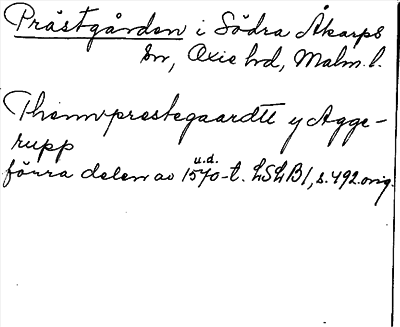 Prästgården i Södra Åkarps
sn, Oxie hd, Malm. l.
Thennprestegaardtt y Agge-
rupp
u.d.
förra delen av 1570-t. LSLB1, s. 492 orig.